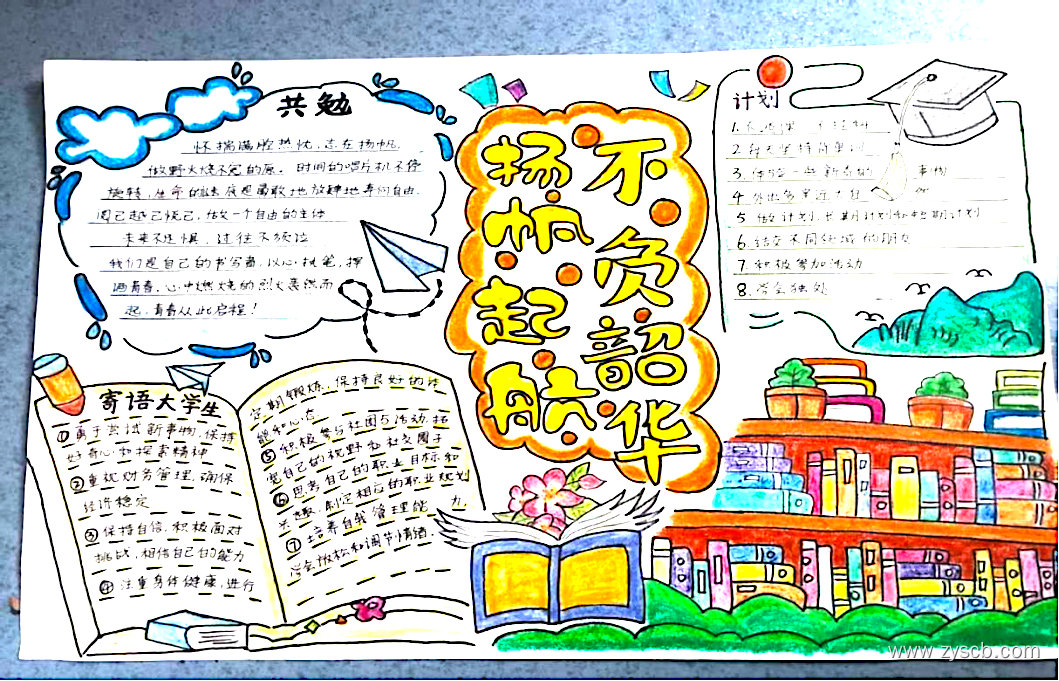 共勉
怀揣满腔热忱,志在扬帆.
做野火烧不完的原。时间的唱片机不停
旋转,生命的法底是勇敢地放肆地寻向自由.
周己悦己,做一个自由的主体
未来不足惧,过往不须泣
我们是自己的书写者,以心执笔,挥
洒青春,心中燃烧的烈火轰然而
起,青春从此启程!
扬帆起航
不负韶华
计划
1.不
2.每天坚持背单词
3.体验一些新奇的事物
4
5 做计划,长期计划和短期计划
6.结交不同领域的朋友
7.积极参加活动
8.学会独处
寄语大学生
①勇于尝试新事物,保持
好奇心和探索精神
②重视财务管理,确保
经济稳定
③保持自信,积极面对
挑战,相信自己的能力
④注重身体健康,进行
定期锻炼,保持良好的体
能和心态
⑤积极参与社团与活动,拓
宽自己的视野和社交圈子
⑥思考自己的职业目标和
兴趣,制定相应的职业规划
⑦培养自我管理能力,
学会放松和调节情绪.
www.zyscb.com